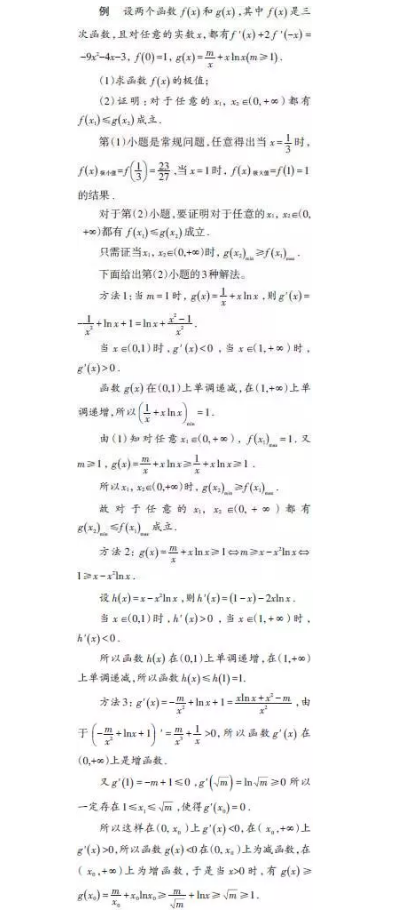 例 设两个函数 f(x)和g(x),其中 f(x)是三
次函数,且对任意的实数x,都有f'(x)+2f'(-x)=
-9x²-4x-3, f(0)=1, g(x)=m/x+xlnx(m≥1).
(1)求函数 f(x)的极值;
(2)证明:对于任意的 x₁, x₂∈(0,+∞)都有
f(x₁)≤g(x₂)成立.
第(1)小题是常规问题,任意得出当 x=1/3 时,
f(x)极小值=f(1/3)=23/27,当x=1时, f(x)极大值=f(1)=1
的结果.
对于第(2)小题,要证明对于任意的x₁, x₂∈(0,
+∞)都有 f(x₁)≤g(x₂)成立.
只需证当x₁, x₂∈(0,+∞)时, g(x₂)min≥f(x₁)max.
下面给出第(2)小题的3种解法。
方法1:当 m=1 时, g(x)=1/x+xlnx,则g'(x)=
-1/x²+lnx+1=lnx+(x²-1)/x².
当 x∈(0,1)时,g'(x)<0,当 x∈(1,+∞)时,
g'(x)>0.
函数 g(x)在(0,1)上单调递减,在(1,+∞)上单
调递增,所以(1/x+xlnx)min=1.
由(1)知对任意x₁∈(0,+∞), f(x₁)max=1.又
m≥1, g(x)=m/x+xlnx≥1/x+xlnx≥1.
所以x₁, x₂∈(0,+∞)时, g(x₂)min≥f(x₁)max.
故对于任意的 x₁, x₂∈(0,+∞)都有
g(x₂)min≤f(x₁)max成立.
方法2: g(x)=m/x+xlnx≥1⇔m≥x-x²lnx⇔
1≥x-x²lnx.
设h(x)=x-x²lnx,则h'(x)=(1-x)-2xlnx.
当 x∈(0,1)时,h'(x)>0,当 x∈(1,+∞)时,
h'(x)<0.
所以函数 h(x)在(0,1)上单调递增,在(1,+∞)
上单调递减,所以函数 h(x)≤h(1)=1.
方法3: g'(x)=-m/x²+lnx+1=(xlnx+x²-m)/x²,由
于(-m/x²+lnx+1)'=m/x²+1/x>0,所以函数 g'(x)在
(0,+∞)上是增函数.
又g'(1)=-m+1≤0, g'(√m)=ln√m≥0 所以
一定存在1≤x₀≤√m,使得g'(x₀)=0.
所以这样在(0, x₀)上g'(x)<0,在(x₀,+∞)上
g'(x)>0,所以函数 g(x)<0在(0, x₀)上为减函数,在
(x₀,+∞)上为增函数,于是当 x>0 时,有 g(x)≥
g(x₀)=m/x₀+x₀lnx₀≥m/√m+lnx≥√m≥1.